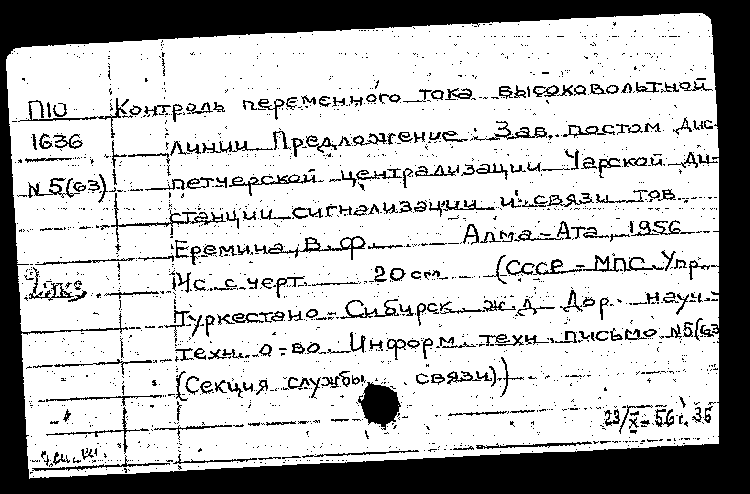 П10 Контроль переменного тока высоковольтной
1636 линии Предложение: Зав. постом дис-
N 5(63) петчерской централизации Чарской ди-
станции сигнализации и связи тов.
Еремина, В. Ф. Алма-Ата, 1956
2 экз. 1/с. с черт. 20 см (СССР - МПС. Упр.
Туркестано-Сибирск. ж.д. Дор. науч.-
техн. о-во. Информ. техн. письмо N5(63)
(Секция службы связи))
23/X-56 г. 35